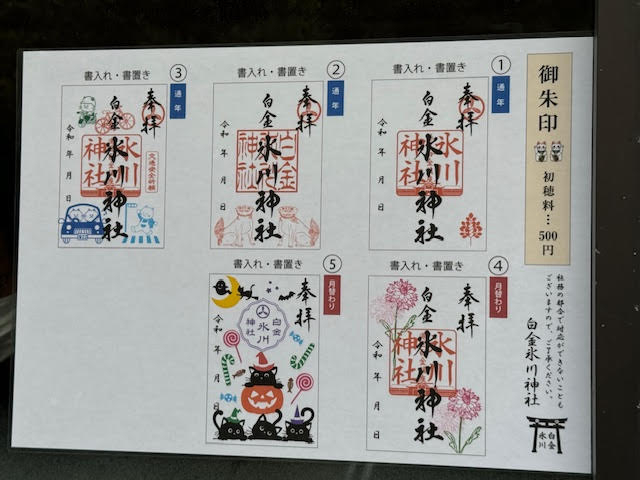 御朱印
初穂料…500円
社務の都合で対応ができないことも
ございますので、ご了承ください。
白金氷川神社
白金
氷川
①
書入れ・書置き
通年
奉拝
白金
氷川神社
氷川
神社
令和 年 月 日
②
書入れ・書置き
通年
奉拝
白金
氷川神社
白金
神社
令和 年 月 日
③
書入れ・書置き
通年
奉拝
白金
氷川神社
氷川
神社
交通安全祈願
令和 年 月 日
④
書入れ・書置き
月替わり
奉拝
白金
氷川神社
氷川
神社
令和 年 月 日
⑤
書入れ・書置き
月替わり
奉拝
白金
氷川
神社
令和 年 月 日